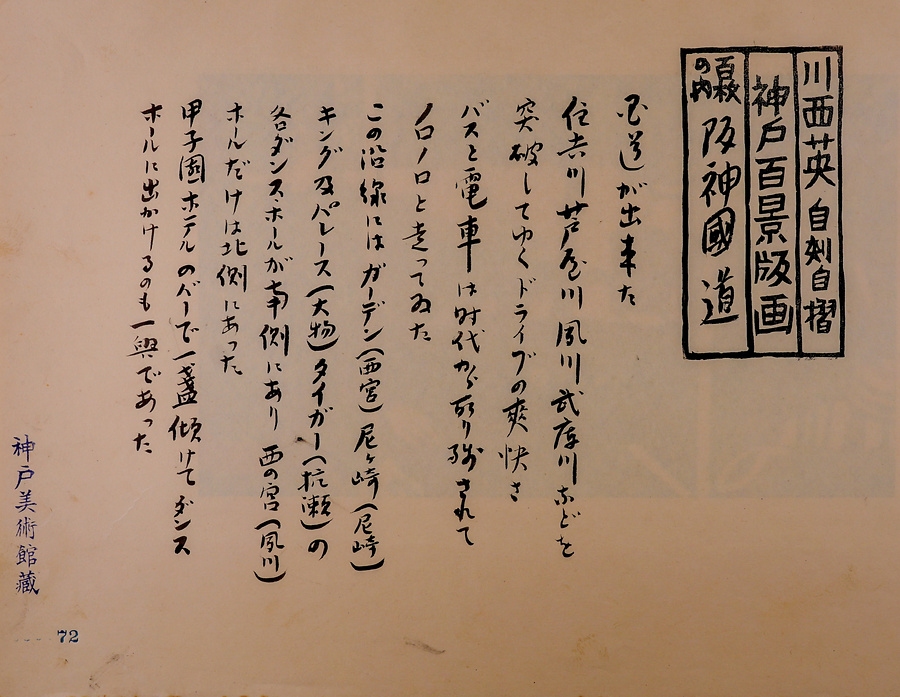 川西英 自刻自摺
神戸百景版画
百枚の内 阪神國道
国道が出来た
住吉川 芦屋川 夙川 武庫川などを
突破してゆくドライブの爽快さ
バスと電車は時代から取り残されて
ノロノロと走ってゐた
この沿線には ガーデン(西宮) 尼ヶ崎(尼崎)
キング及パレース(大物) タイガー(杭瀬)の
各ダンスホールが南側にあり 西の宮(夙川)
ホールだけは北側にあった
甲子園ホテルのバーで一盞傾けて ダンス
ホールに出かけるのも一興であった
神戸美術館蔵
72